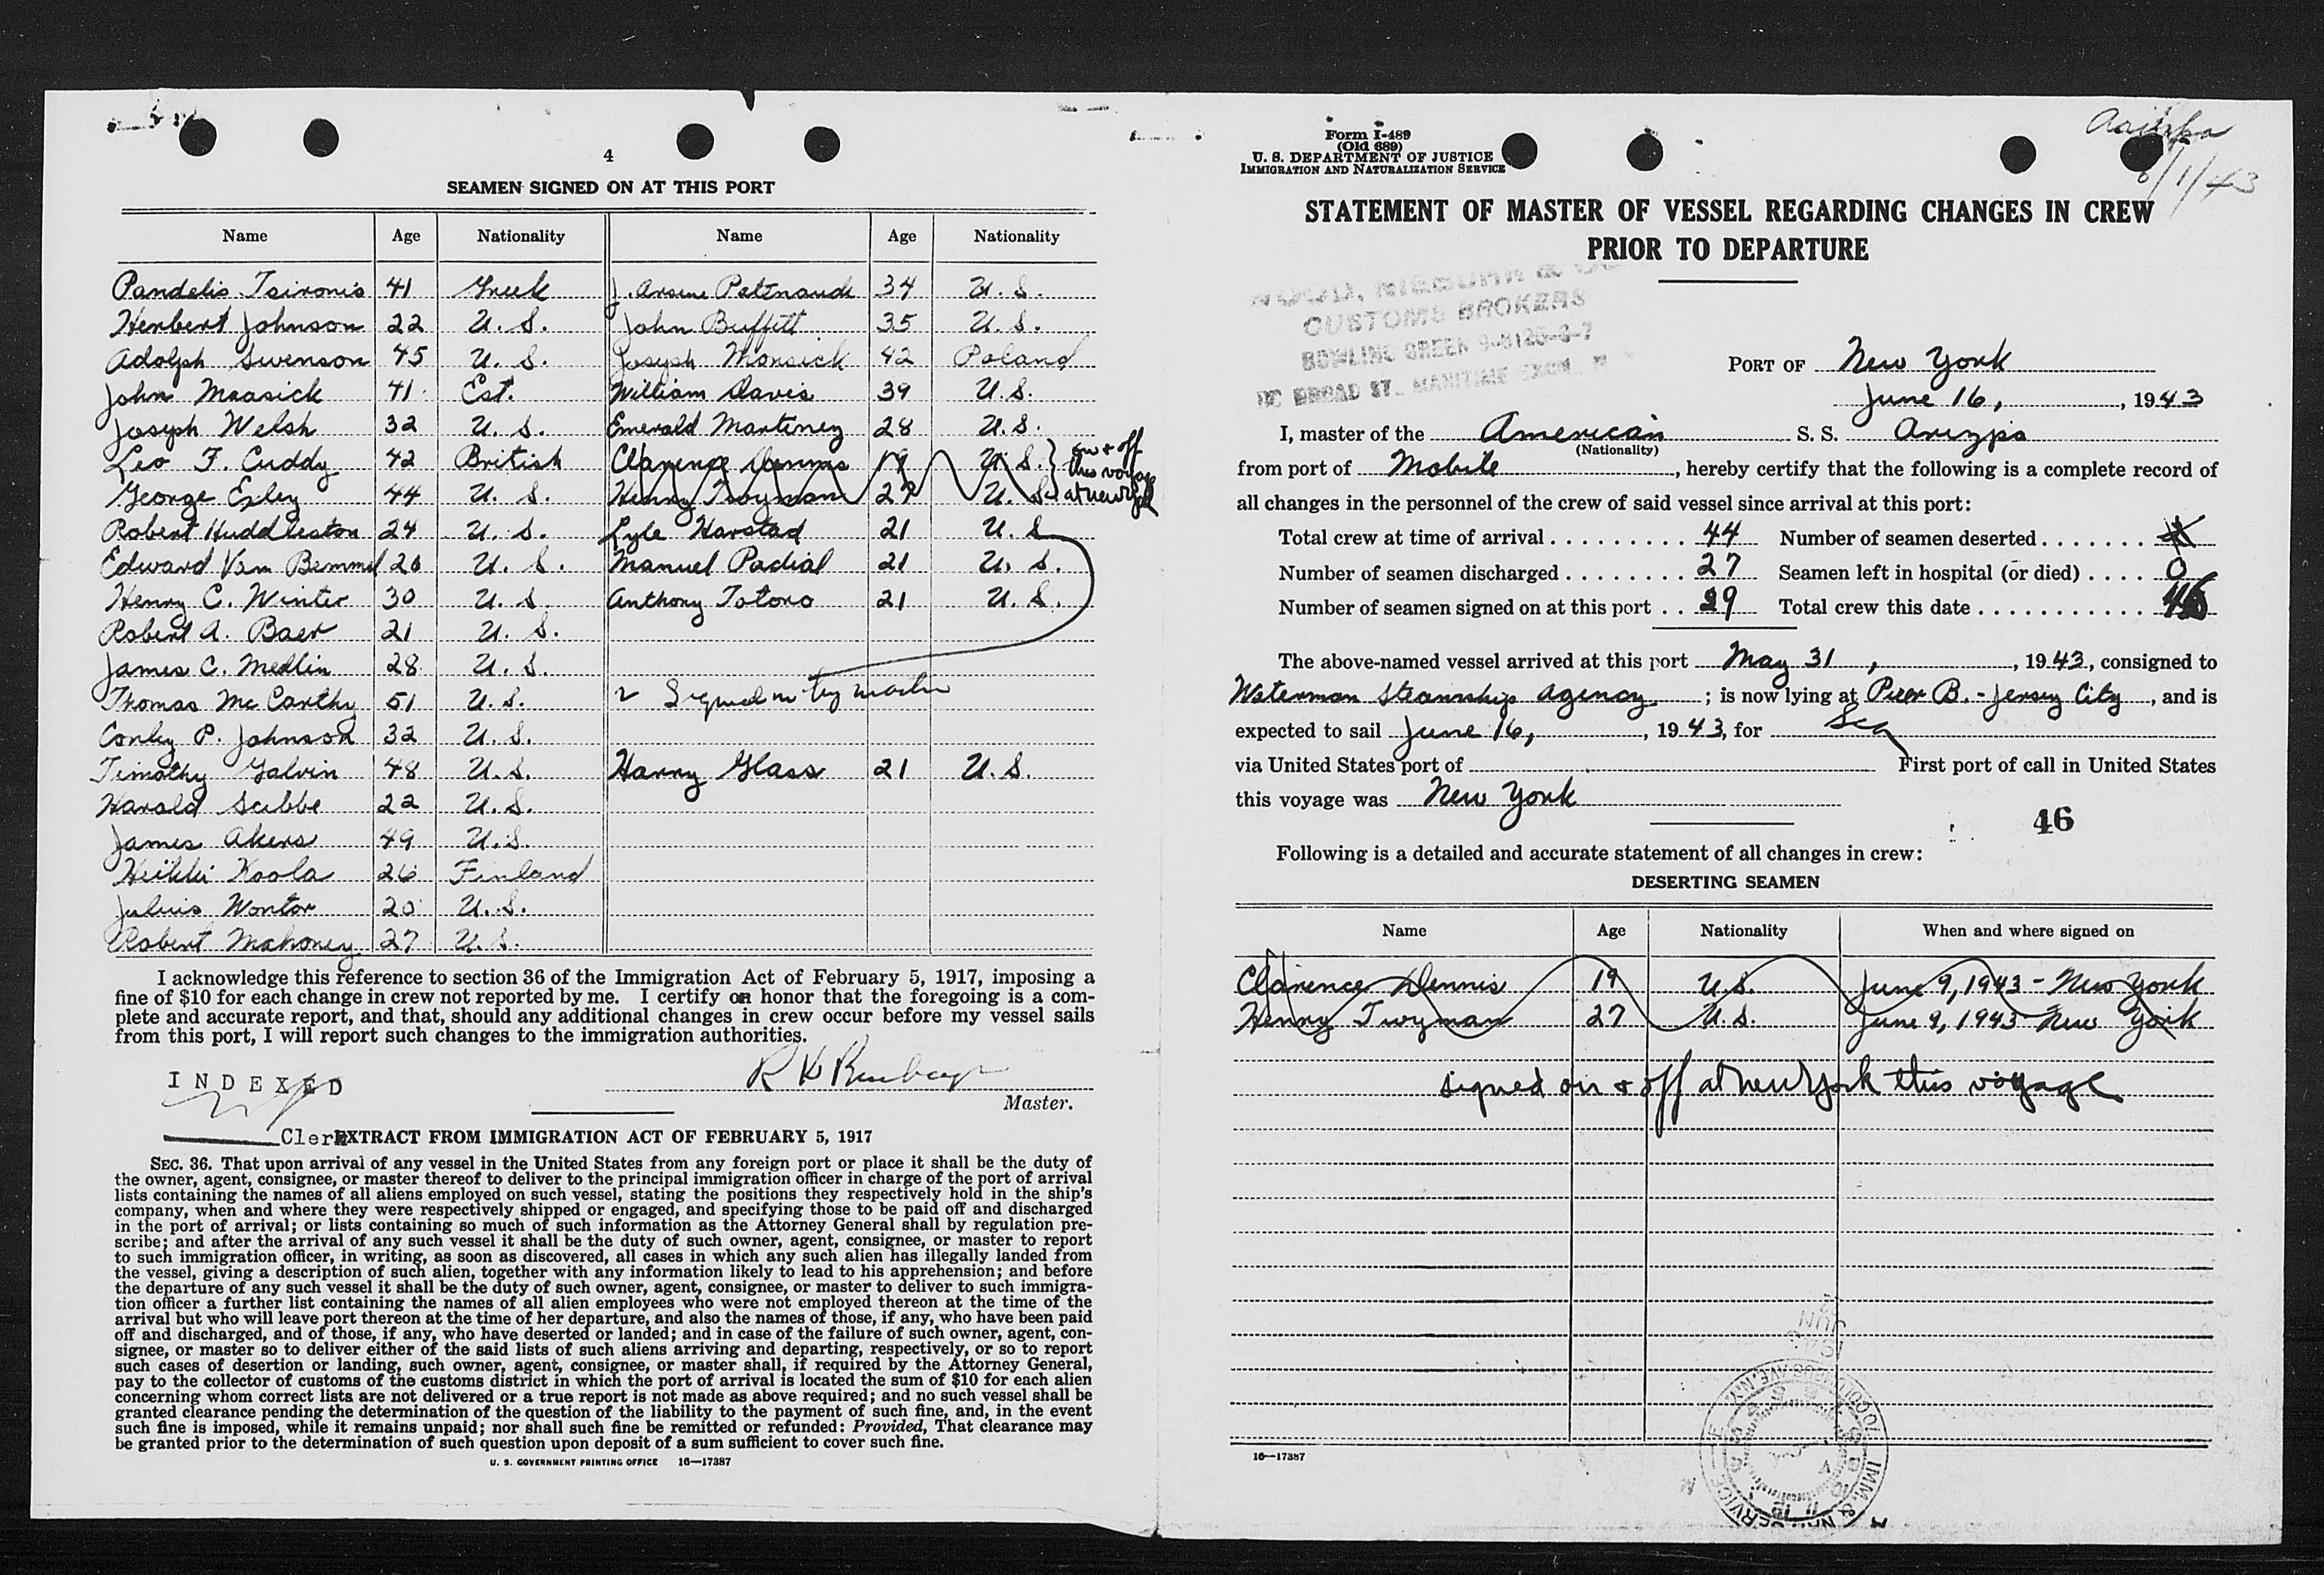 4
SEAMEN SIGNED ON AT THIS PORT
Name Age Nationality Name Age Nationality
Pandelis Tsironis 41 Greek J. Arsene Patenaude 34 U. S.
Herbert Johnson 22 U. S. John Buffett 35 U. S.
Adolph Swenson 45 U. S. Joseph Monsick 42 Poland
John Maasick 41 Est. William Davis 39 U. S.
Joseph Welsh 32 U. S. Emerald Martinez 28 U. S.
Leo F. Cuddy 42 British Clarence Dennis 19 U. S. on & off
this voyage
George Exley 44 U. S. Henry Twyman 27 U. S. at new york
Robert Huddleston 24 U. S. Lyle Harstad 21 U. S.
Edward Van Bemmel 20 U. S. Manuel Padial 21 U. S.
Henry C. Winter 30 U. S. Anthony Totoro 21 U. S.
Robert A. Baer 21 U. S.
James C. Medlin 28 U. S.
Thomas Mc Carthy 51 U. S. Signed on by master
Conley P. Johnson 32 U. S.
Timothy Galvin 48 U. S. Harry Glass 21 U. S.
Harold Scibbe 22 U. S.
James Akers 49 U. S.
Heikki Koola 26 Finland
Julius Wontor 20 U. S.
Robert Mahoney 27 U. S.
I acknowledge this reference to section 36 of the Immigration Act of February 5, 1917, imposing a
fine of $10 for each change in crew not reported by me. I certify on honor that the foregoing is a com-
plete and accurate report, and that, should any additional changes in crew occur before my vessel sails
from this port, I will report such changes to the immigration authorities.
INDEXED
Master.
Clerk
EXTRACT FROM IMMIGRATION ACT OF FEBRUARY 5, 1917
SEC. 36. That upon arrival of any vessel in the United States from any foreign port or place it shall be the duty of
the owner, agent, consignee, or master thereof to deliver to the principal immigration officer in charge of the port of arrival
lists containing the names of all aliens employed on such vessel, stating the positions they respectively hold in the ship's
company, when and where they were respectively shipped or engaged, and specifying those to be paid off and discharged
in the port of arrival; or lists containing so much of such information as the Attorney General shall by regulation pre-
scribe; and after the arrival of any such vessel it shall be the duty of such owner, agent, consignee, or master to report
to such immigration officer, in writing, as soon as discovered, all cases in which any such alien has illegally landed from
the vessel, giving a description of such alien, together with any information likely to lead to his apprehension; and before
the departure of any such vessel it shall be the duty of such owner, agent, consignee, or master to deliver to such immigra-
tion officer a further list containing the names of all alien employees who were not employed thereon at the time of the
arrival but who will leave port thereon at the time of her departure, and also the names of those, if any, who have been paid
off and discharged, and of those, if any, who have deserted or landed; and in case of the failure of such owner, agent, con-
signee, or master so to deliver either of the said lists of such aliens arriving and departing, respectively, or so to report
such cases of desertion or landing, such owner, agent, consignee, or master shall, if required by the Attorney General,
pay to the collector of customs of the customs district in which the port of arrival is located the sum of $10 for each alien
concerning whom correct lists are not delivered or a true report is not made as above required; and no such vessel shall be
granted clearance pending the determination of the question of the liability to the payment of such fine, and, in the event
such fine is imposed, while it remains unpaid; nor shall such fine be remitted or refunded: Provided, That clearance may
be granted prior to the determination of such question upon deposit of a sum sufficient to cover such fine.
U. S. GOVERNMENT PRINTING OFFICE 16—17387
Form I-489
(Old 689)
U. S. DEPARTMENT OF JUSTICE
IMMIGRATION AND NATURALIZATION SERVICE
Arizpa
6/1/43
STATEMENT OF MASTER OF VESSEL REGARDING CHANGES IN CREW
PRIOR TO DEPARTURE
CUSTOMS BROKERS
BOWLING GREEN
BROAD ST. MARITIME
PORT OF New York
June 16, , 1943
I, master of the American S. S. Arizpa
(Nationality)
from port of Mobile , hereby certify that the following is a complete record of
all changes in the personnel of the crew of said vessel since arrival at this port:
Total crew at time of arrival 44 Number of seamen deserted
Number of seamen discharged 27 Seamen left in hospital (or died) 0
Number of seamen signed on at this port 29 Total crew this date 46
The above-named vessel arrived at this port May 31 , , 1943, consigned to
Waterman Steamship Agency ; is now lying at Pier B. - Jersey City , and is
expected to sail June 16, , 1943, for Sea
via United States port of First port of call in United States
this voyage was New York
46
Following is a detailed and accurate statement of all changes in crew:
DESERTING SEAMEN
Name Age Nationality When and where signed on
Clarence Dennis 19 U. S. June 9, 1943 - New York
Henry Twyman 27 U. S. June 9, 1943 New York
signed on & off at new york this voyage
16—17387